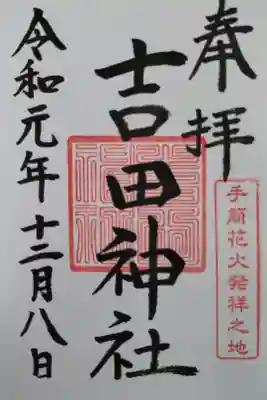 奉拝
手筒花火発祥之地
吉田神社
令和元年十二月八日